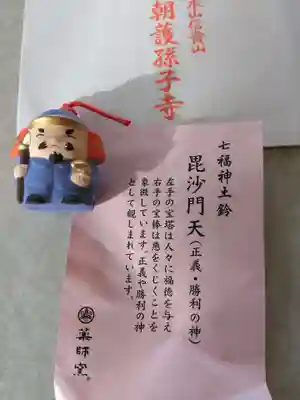 本山信貴山
朝護孫子寺
七福神土鈴
毘沙門天(正義・勝利の神)
左手の宝塔は人々に福徳を与え
右手の宝棒は悪をくじくことを
象徴しています。正義や勝利の神
として親しまれています。
薬師窯。